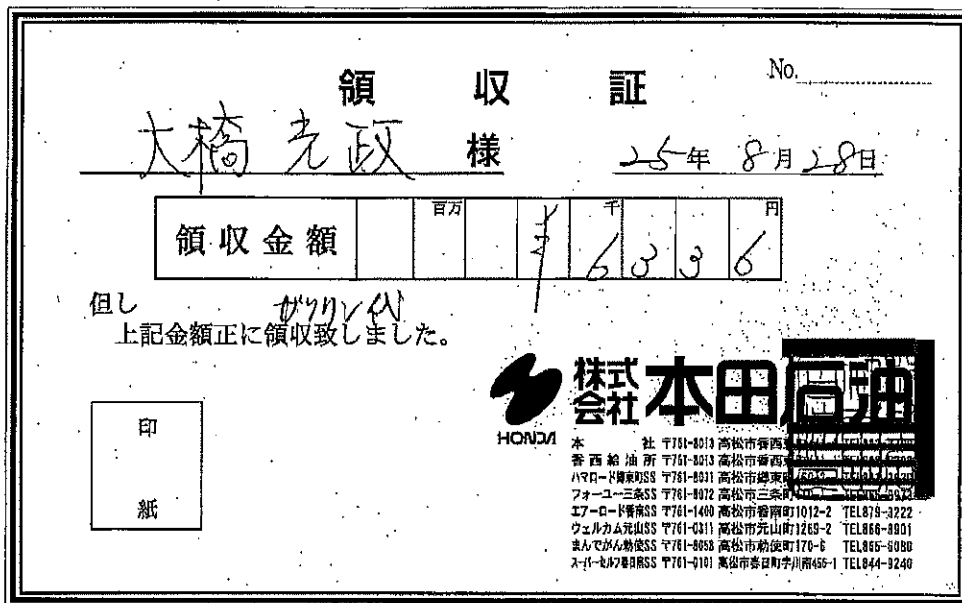 領 収 証
No.
大橋光政 様
25年 8月 28日
領収金額 百万 ¥ 千 6 3 3 6 円
但し ガソリン代
上記金額正に領収致しました。
印
紙
HONDA
株式会社 本田石油
本 社 〒761-8013 高松市香西
香西給油所 〒761-8013 高松市香西
ハマロード郷東町SS 〒761-8031 高松市郷東
フォーユー三条SS 〒761-8072 高松市三条町
エアーロード香南SS 〒761-1400 高松市香南町1012-2 TEL879-3222
ウェルカム元山SS 〒761-0311 高松市元山町1269-2 TEL866-8901
まんでがん勅使SS 〒761-8058 高松市勅使町170-6 TEL866-6080
スーパーセルフ春日南SS 〒761-0101 高松市春日町字川南456-1 TEL844-9240